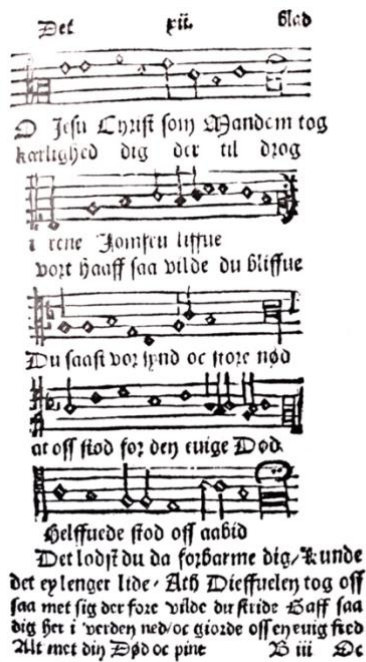 Det xii. blad
O Jesu Christ som Mandem tog
kærlighed dig der til drog
i rene Jomfru liffue
vort Haaff saa vilde du bliffue
Du saast vor synd oc store nød
at oss stod for den euige Død.
Helffuede stod oss aabid
Det lodst du da forbarme dig/ kunde
det ey lenger lide/ Ath Dieffuelen tog oss
saa met sig der fore vilde du stride Gaff saa
dig her i verden ned/ oc giorde oss en euig fred
Alt met din Død oc pine B iii Oc